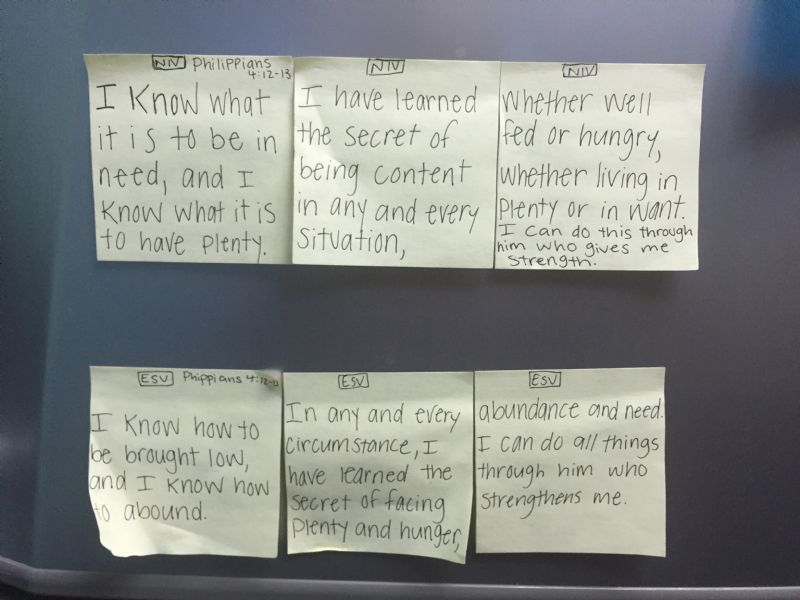 NIV Philippians
4:12-13
I know what
it is to be in
need, and I
know what it is
to have plenty.
NIV
I have learned
the secret of
being content
in any and every
situation,
NIV
Whether well
fed or hungry,
whether living in
plenty or in want.
I can do this through
him who gives me
strength.
ESV Phippians 4:12-13
I know how to
be brought low,
and I know how
to abound.
ESV
In any and every
circumstance, I
have learned the
secret of facing
plenty and hunger,
ESV
abundance and need.
I can do all things
through him who
strengthens me.